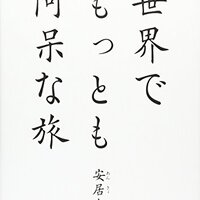 世界で
もっとも
阿呆な旅
安居